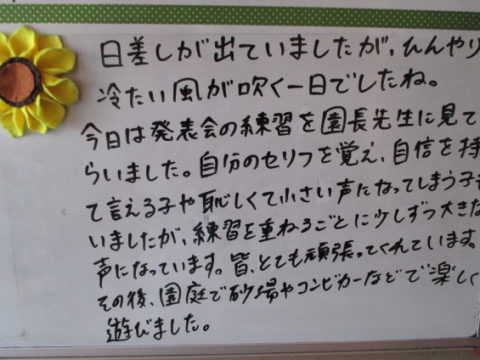 日差しが出ていましたが、ひんやり
冷たい風が吹く一日でしたね。
今日は発表会の練習を園長先生に見て
らいました。自分のセリフを覚え、自信を持
て言える子や恥しくて小さい声になってしまう子も
いましたが、練習を重ねるごとに少しずつ大きな
声になっています。皆、とても頑張ってくれています。
その後、園庭で砂場やコンビカーなどで楽しく
遊びました。